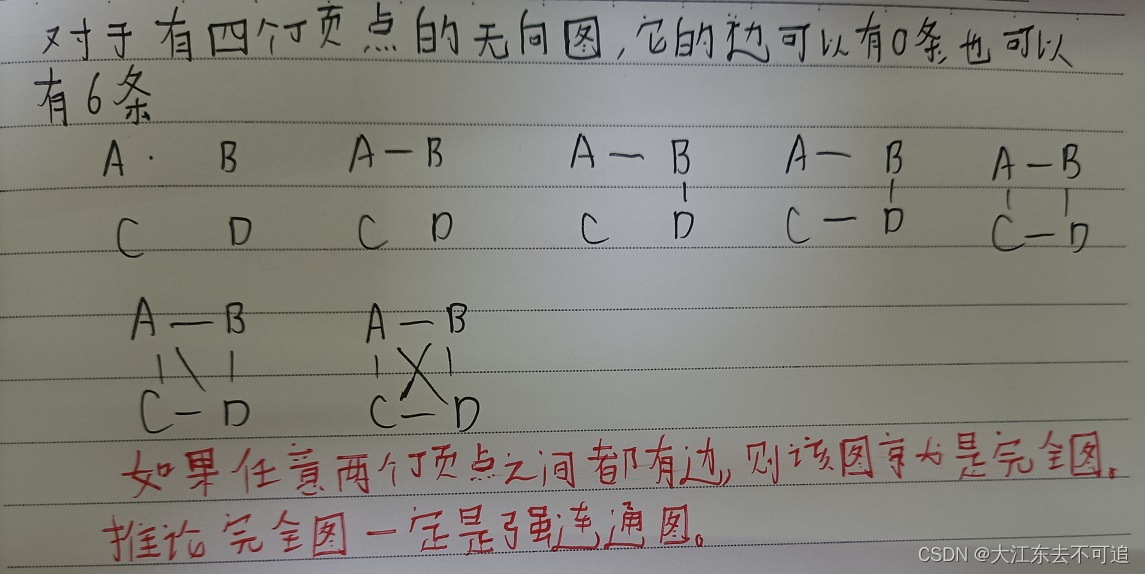 对于有四个顶点的无向图,它的边可以有0条,也可以
有6条
A · B A — B A — B A — B A — B
C D C D C D C — D C — D
A — B A — B
C — D C — D
如果任意两个顶点之间都有边,则该图就是完全图。
推论完全图一定是强连通图。
CSDN @大江东去不可追